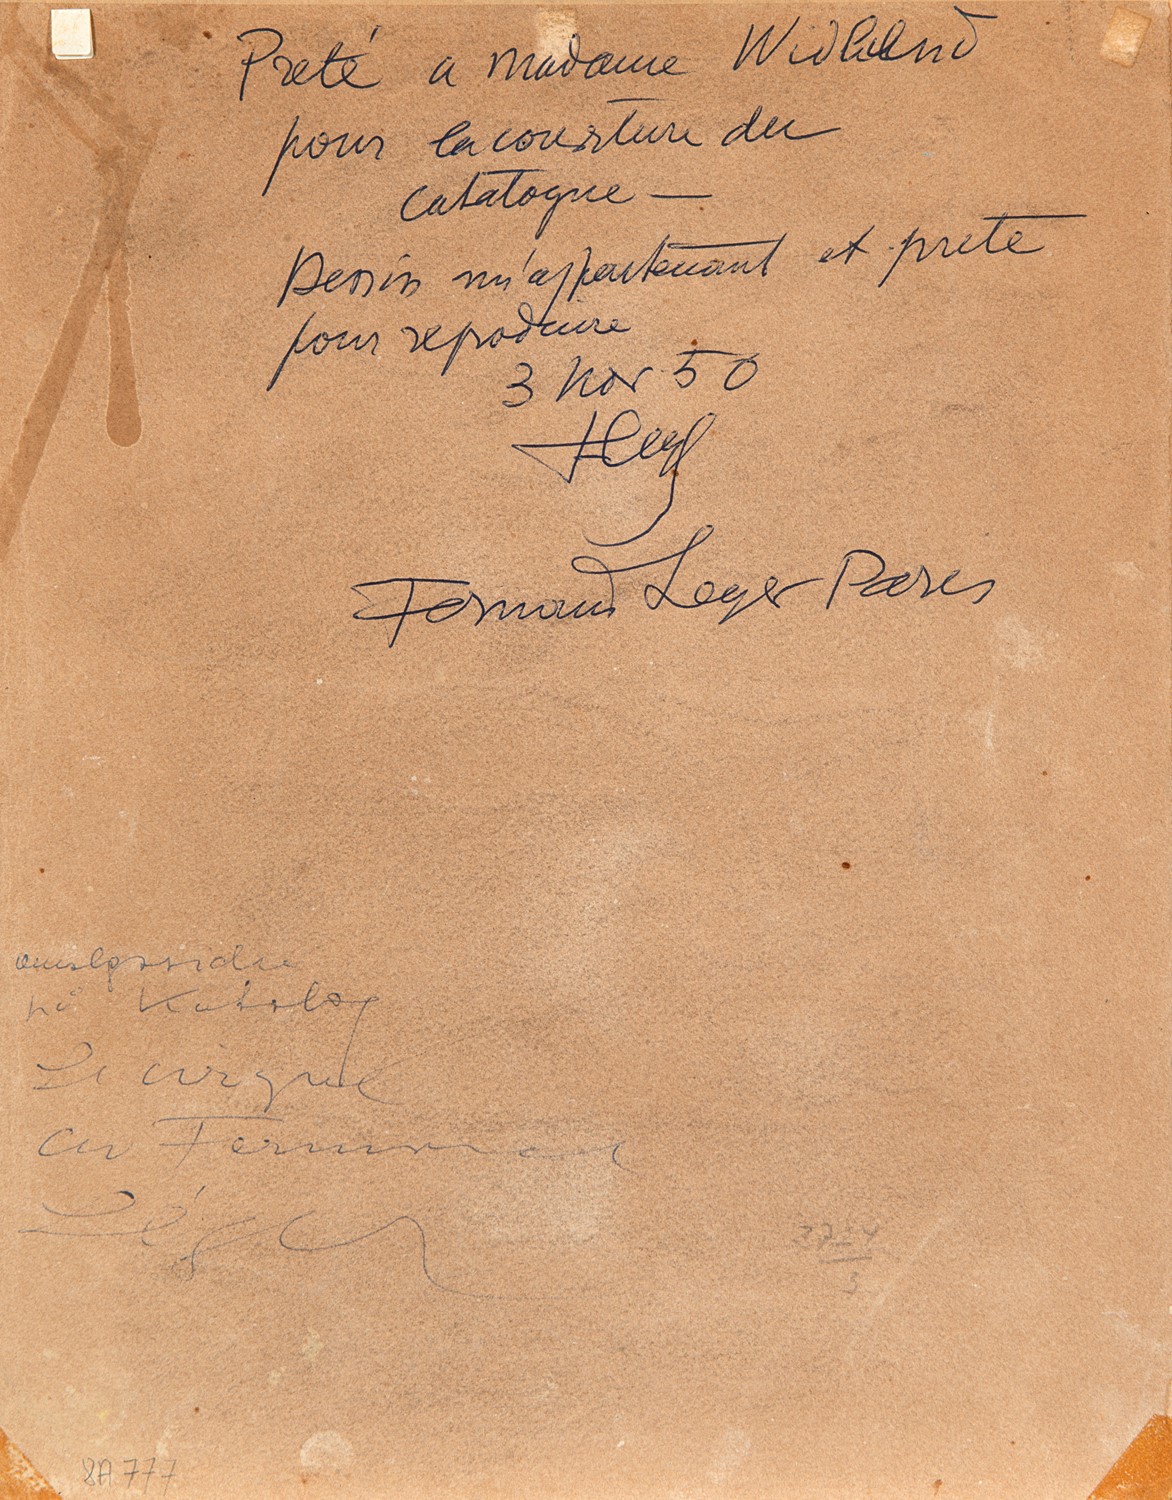 Preté a madame Widlund
pour la couverture du
catalogue —
Dessin m'appartenant et prete
pour reproduire
3 Nov 50
FLeg
Fernand Leger Paris
omslagssidan
på Katalog
Le cirque
av Fernand
Léger
3
8A 777